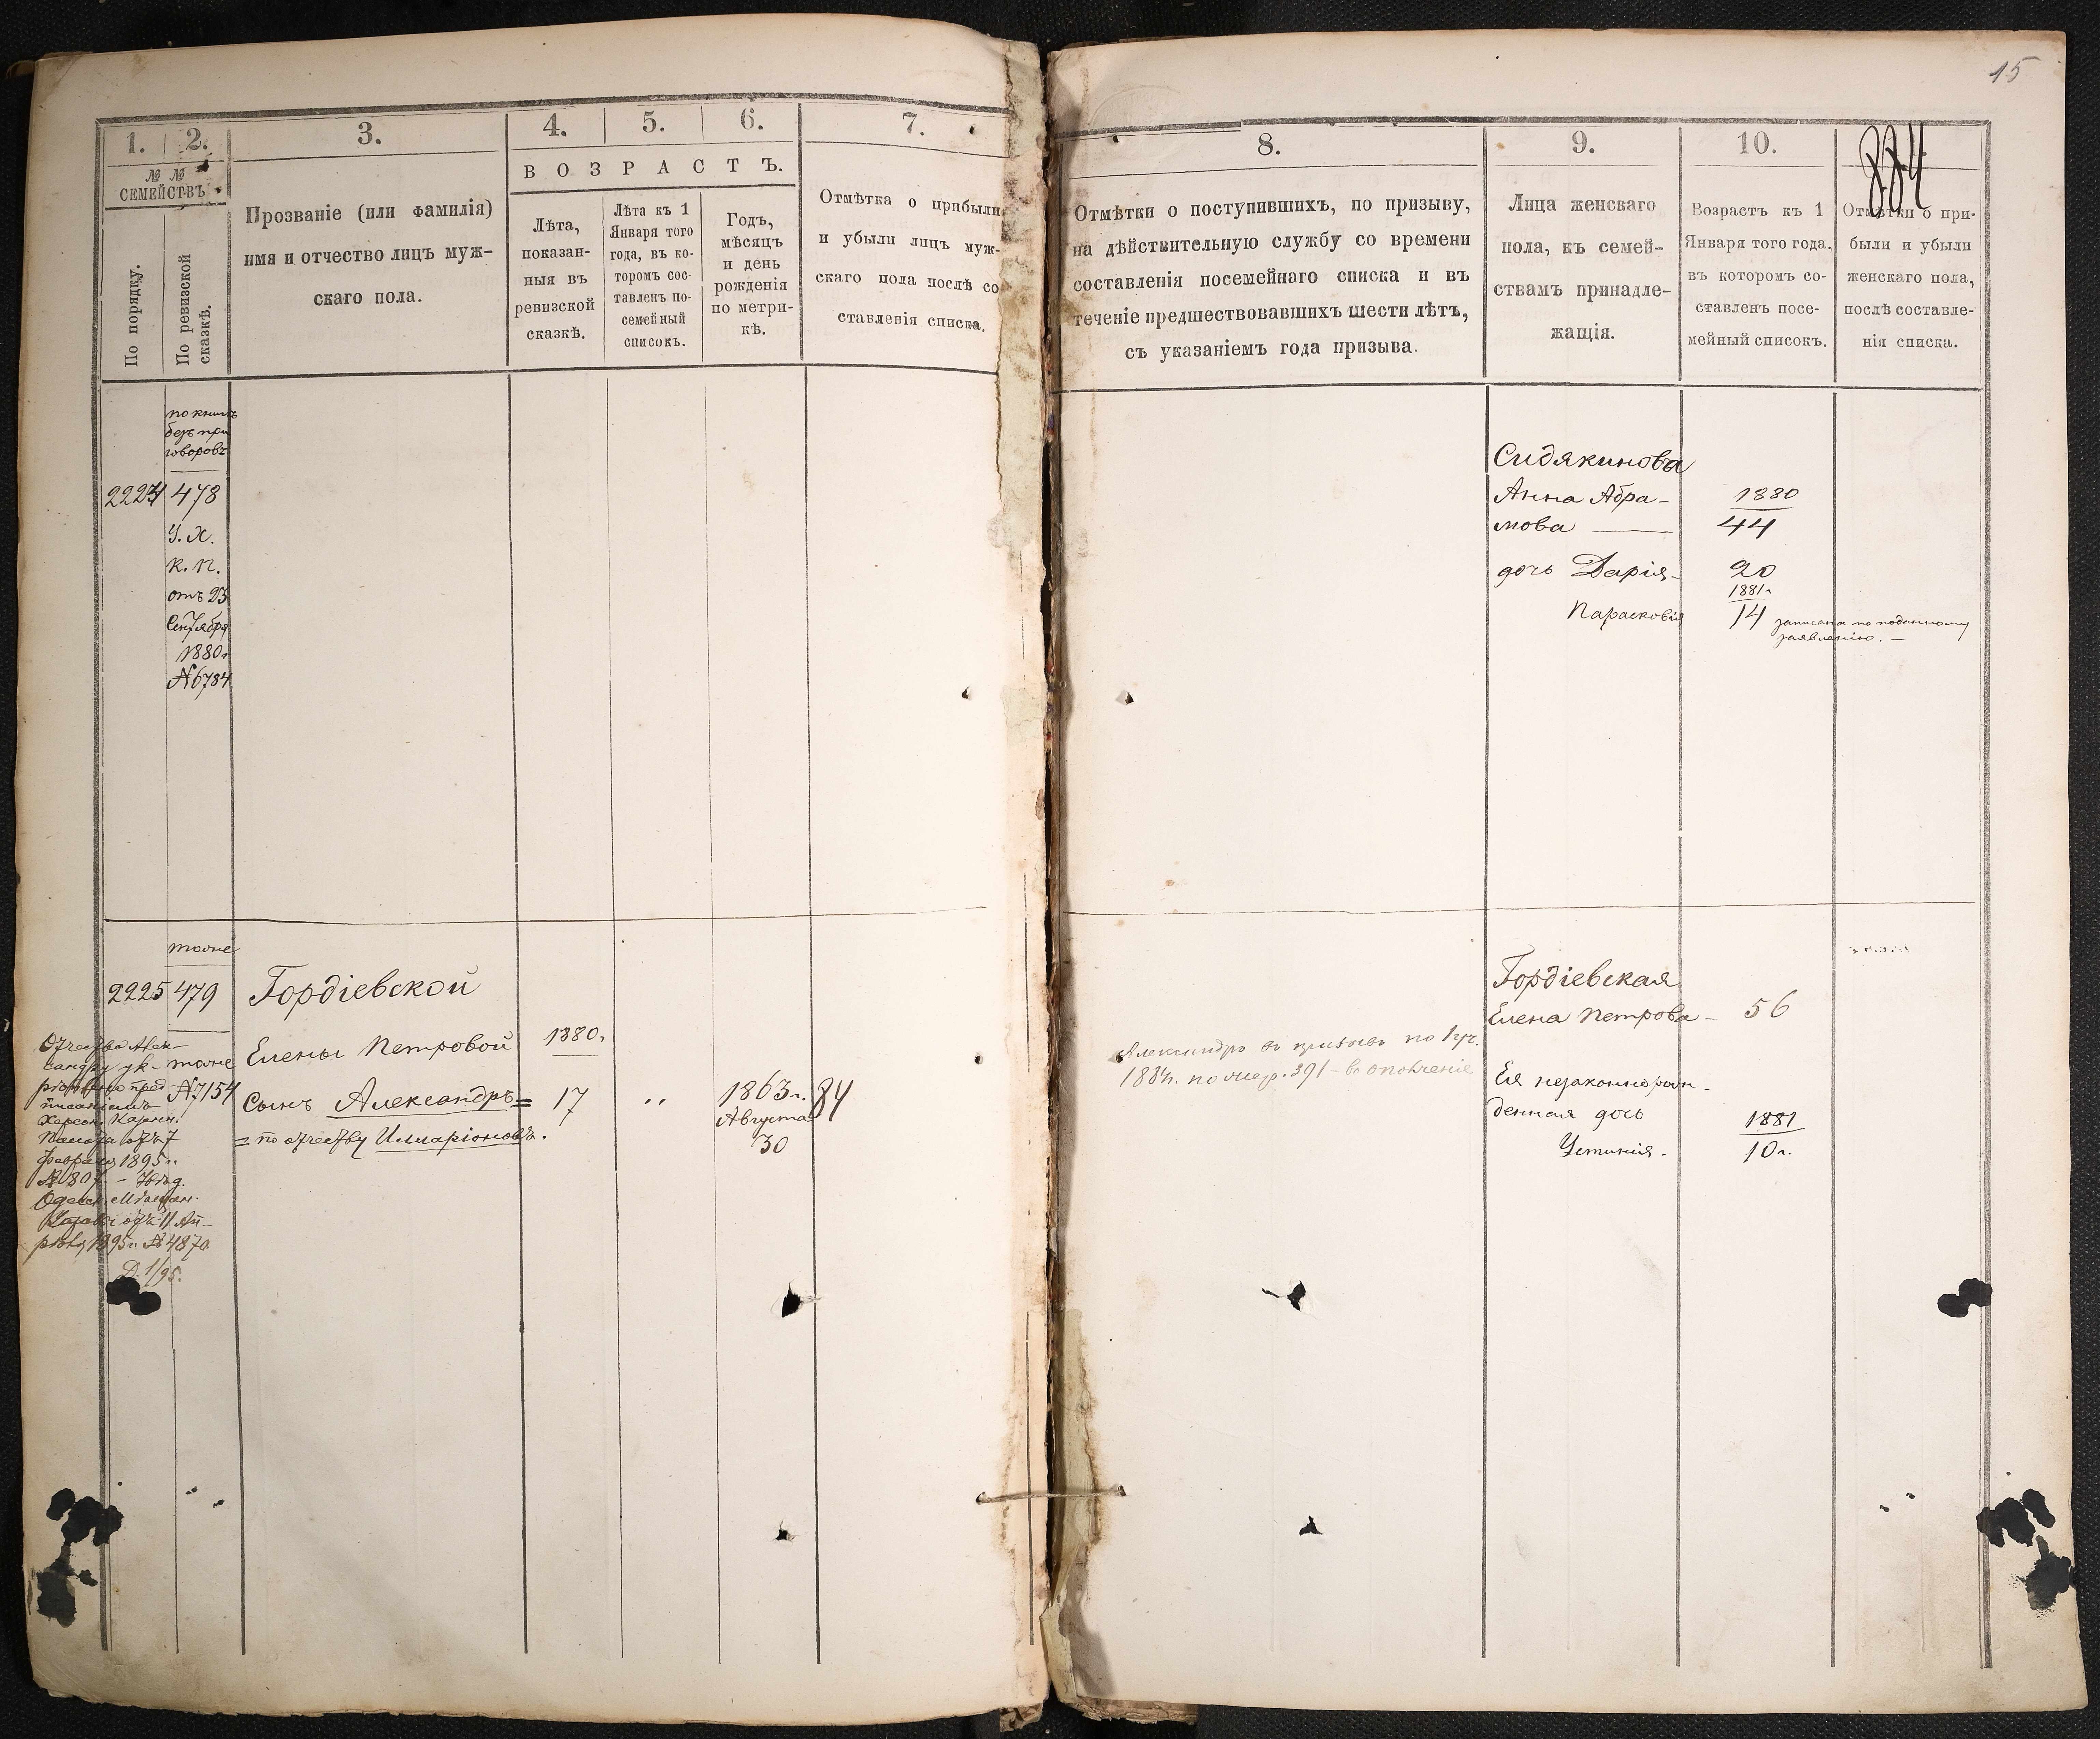 1.
2.
3.
4.
5.
6.
7.
№ №
СЕМЕЙСТВЪ
По порядку.
По ревизской
сказкѣ.
Прозваніе (или фамилія)
имя и отчество лицъ муж-
скаго пола.
ВОЗРАСТЪ.
Лѣта,
показан-
ныя въ
ревизской
сказкѣ.
Лѣта къ 1
Января того
года, въ ко-
торомъ сос-
тавленъ по-
семейный
списокъ.
Годъ,
мѣсяцъ
и день
рожденія
по метри-
кѣ.
Отмѣтка о прибыли
и убыли лицъ муж-
скаго пола послѣ со
ставленія списка.
по книгѣ
безъ при
говоровъ
2224 478
У. Х.
К. П.
отъ 23
Сентября
1880г.
№6784
тоже
2225 479
Гордіевской
Елены Петровой
1880г.
тоже
№7154
Сынъ Александръ=
17
„
1863г.
84
Августа
30
= по отчеству Илларіоновъ.
Отчество Алек-
сандру ук-
пред-
писаніемъ
Херсон. Казен.
Палаты отъ 7
Февраля 1895г.
Одесск. Мѣщан.
отъ 11 Ап-
рѣля 1895г. № 4870
Д. 1/95.
15
884
8.
9.
10.
Отмѣтки о поступившихъ, по призыву,
на дѣйствительную службу со времени
составленія посемейнаго списка и въ
теченіе предшествовавшихъ шести лѣтъ,
съ указаніемъ года призыва.
Лица женскаго
пола, къ семей-
ствамъ принадле-
жащія.
Возрастъ къ 1
Января того года,
въ которомъ со-
ставленъ посе-
мейный списокъ.
Отмѣтки о при-
были и убыли
женскаго пола,
послѣ составле-
нія списка.
Сидякинова
Анна Абра-
1880
мова
44
дочь Дарія-
20
1881г
Парасковія
14
записана по поданному
заявленію. —
Гордіевская
Елена Петрова-
56
Александръ въ призывъ по 1 уч.
1884г. по жер. 391 - въ ополченіе
Ея незаконнорож-
денная дочь
1881
Устинія.
10 л.